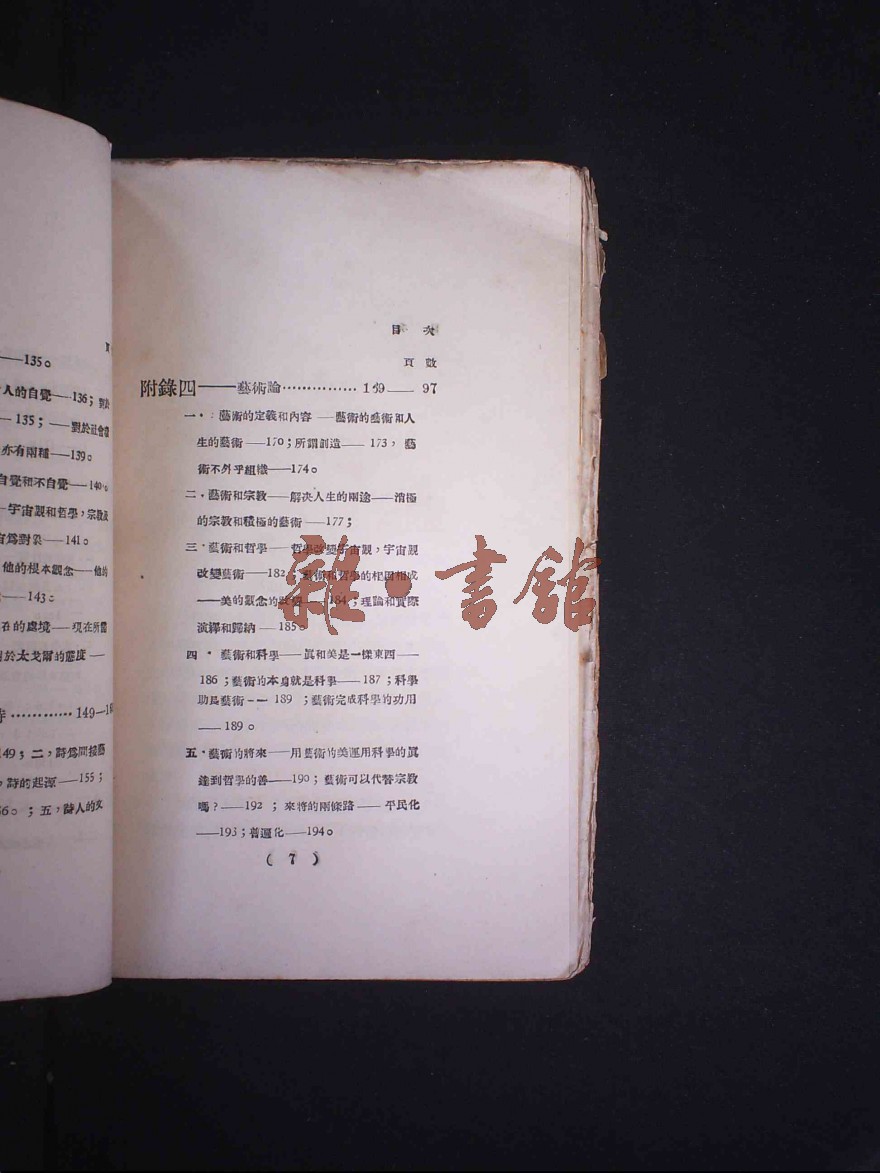 ——135。
人的自覺——136；對於
——135；——對於社會的
亦有兩種——139。
自覺和不自覺——140。
宇宙觀和哲學，宗教及
宙爲對象——141。
他的根本觀念——他的
——143；
在的處境——現在所需
於太戈爾的態度——
詩…………149—1
149；二，詩爲間接藝
，詩的起源——155；
66。；五，詩人的文
目次
頁數
附錄四——藝術論……………169——97
一．：藝術的定義和內容——藝術的藝術和人
生的藝術——170；所謂創造——173，藝
術不外乎組織——174。
二．藝術和宗教——解決人生的兩途——消極
的宗教和積極的藝術——177；
三．藝術和哲學——哲學改變宇宙觀，宇宙觀
改變藝術——182　藝術和哲學的相因相成
——美的觀念的改變——184；理論和實際
演繹和歸納——185。
四．藝術和科學——眞和美是一樣東西——
186；藝術的本身就是科學——187；科學
助長藝術——189；藝術完成科學的功用
——189。
五．藝術的將來——用藝術的美運用科學的眞
達到哲學的善——190；藝術可以代替宗教
嗎？——192；來將的兩條路——平民化
——193；普遍化——194。
（7）
雜·書館